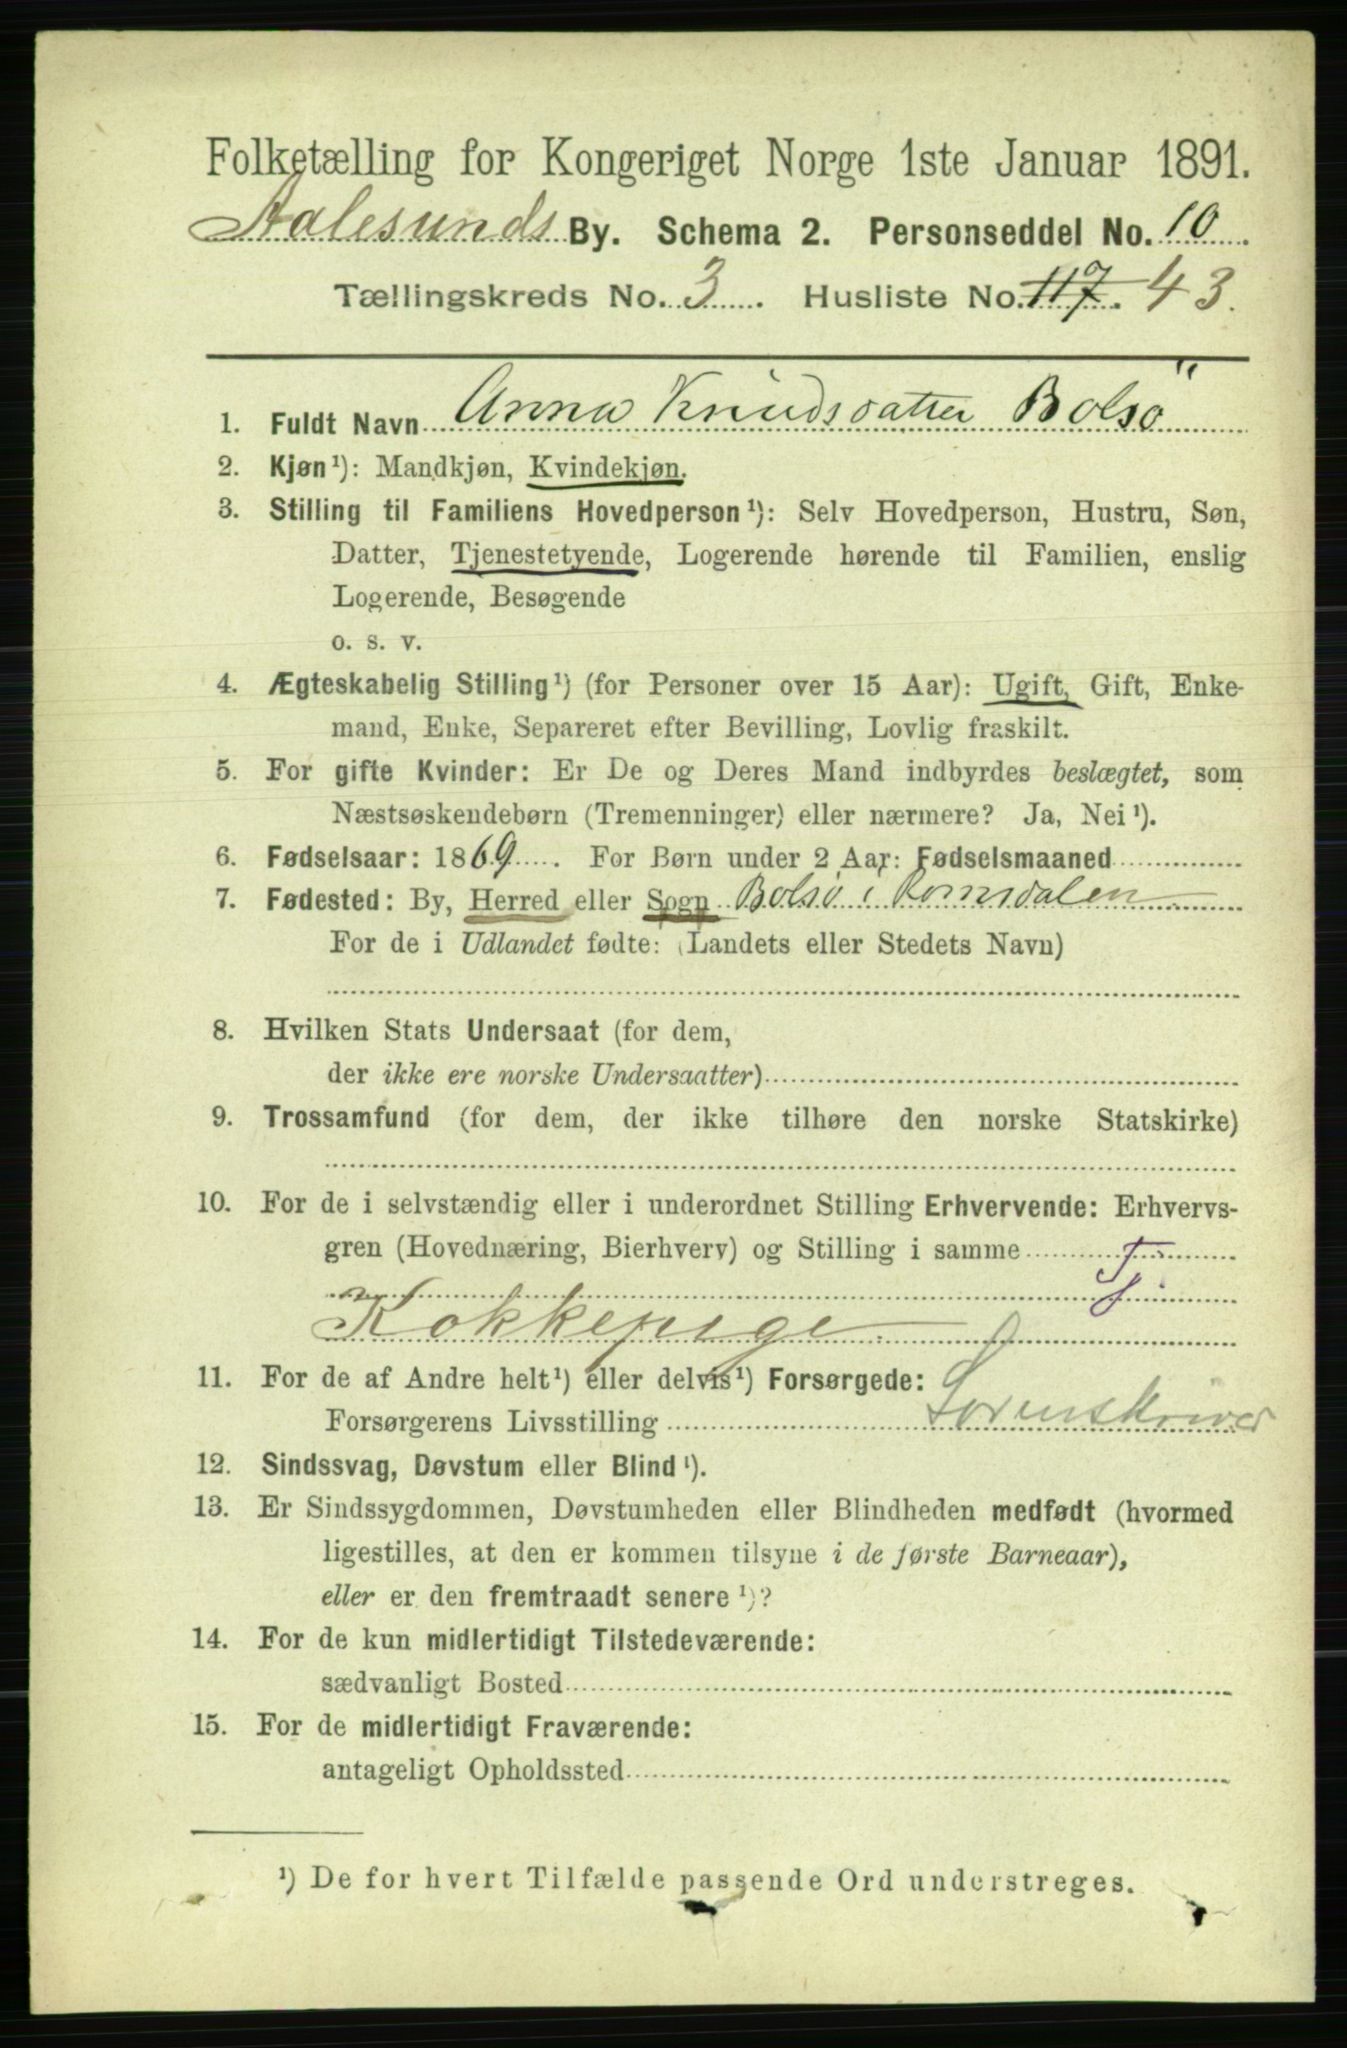 Folketælling for Kongeriget Norge 1ste Januar 1891.
Aalesunds By. Schema 2. Personseddel No. 10
Tællingskreds No. 3. Husliste No. 117. 43.
1. Fuldt Navn Anna Knudsdatter Bolsö
2. Kjøn¹): Mandkjøn, Kvindekjøn.
3. Stilling til Familiens Hovedperson¹): Selv Hovedperson, Hustru, Søn,
Datter, Tjenestetyende, Logerende hørende til Familien, enslig
Logerende, Besøgende
o. s. v.
4. Ægteskabelig Stilling¹) (for Personer over 15 Aar): Ugift, Gift, Enke-
mand, Enke, Separeret efter Bevilling, Lovlig fraskilt.
5. For gifte Kvinder: Er De og Deres Mand indbyrdes beslægtet, som
Næstsøskendebørn (Tremenninger) eller nærmere? Ja, Nei¹).
6. Fødselsaar: 1869. For Børn under 2 Aar: Fødselsmaaned
7. Fødested: By, Herred eller Sogn Bolsö i Romsdalen
For de i Udlandet fødte: (Landets eller Stedets Navn)
8. Hvilken Stats Undersaat (for dem,
der ikke ere norske Undersaatter)
9. Trossamfund (for dem, der ikke tilhøre den norske Statskirke)
10. For de i selvstændig eller i underordnet Stilling Erhvervende: Erhvervs-
gren (Hovednæring, Bierhverv) og Stilling i samme Tj
Kokkepige
11. For de af Andre helt¹) eller delvis¹) Forsørgede:
Forsørgerens Livsstilling Sorenskriver
12. Sindssvag, Døvstum eller Blind¹).
13. Er Sindssygdommen, Døvstumheden eller Blindheden medfødt (hvormed
ligestilles, at den er kommen tilsyne i de første Barneaar),
eller er den fremtraadt senere¹)?
14. For de kun midlertidigt Tilstedeværende:
sædvanligt Bosted
15. For de midlertidigt Fraværende:
antageligt Opholdssted
¹) De for hvert Tilfælde passende Ord understreges.